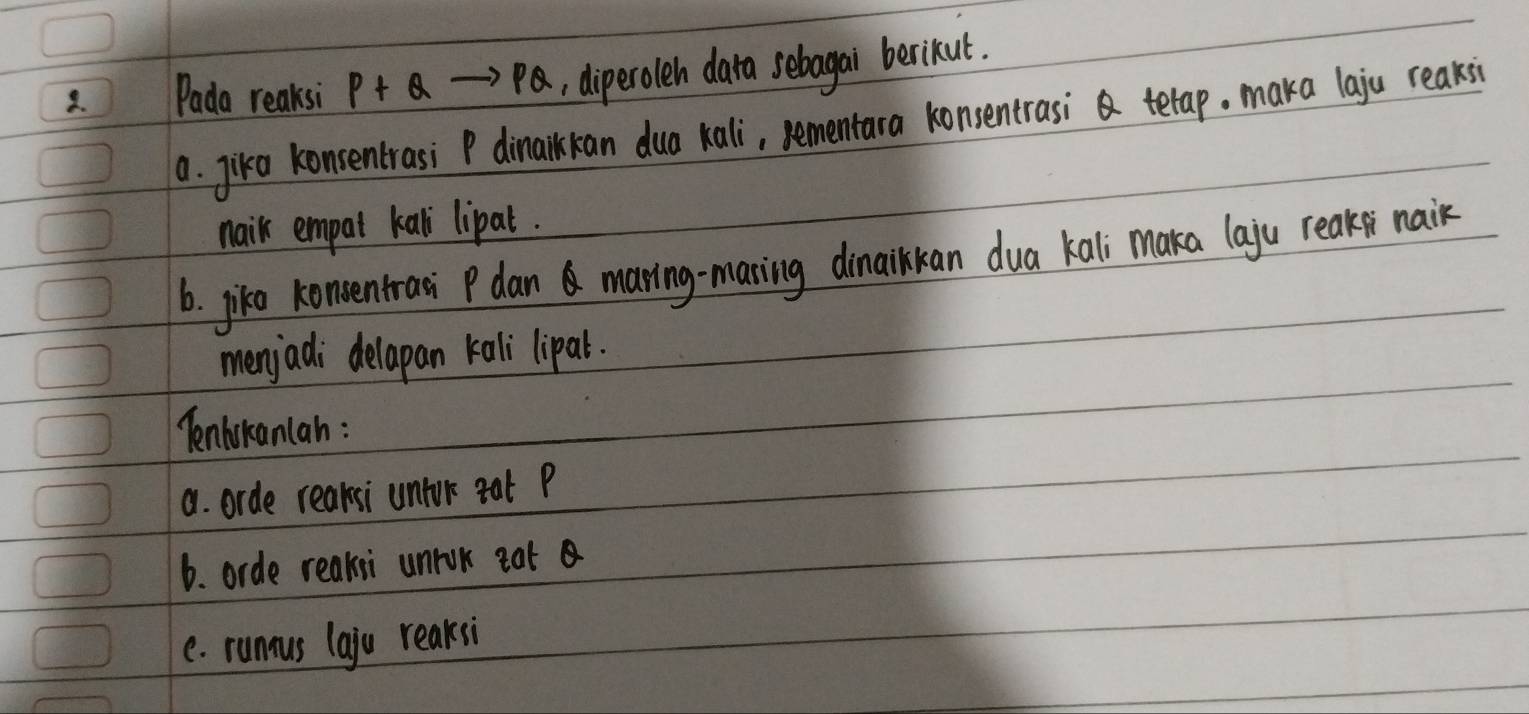 2. Pada reaksi P + Q → PQ, diperoleh data sebagai berikut.
a. jika konsentrasi P dinaikkan dua kali, sementara konsentrasi Q tetap. maka laju reaksi
naik empat kali lipat.
b. jika konsentrasi P dan Q masing-masing dinaikkan dua kali maka laju reaksi naik
menjadi delapan kali lipat.
Tentukanlah :
a. orde reaksi untuk zat P
b. orde reaksi untuk zat Q
c. rumus laju reaksi